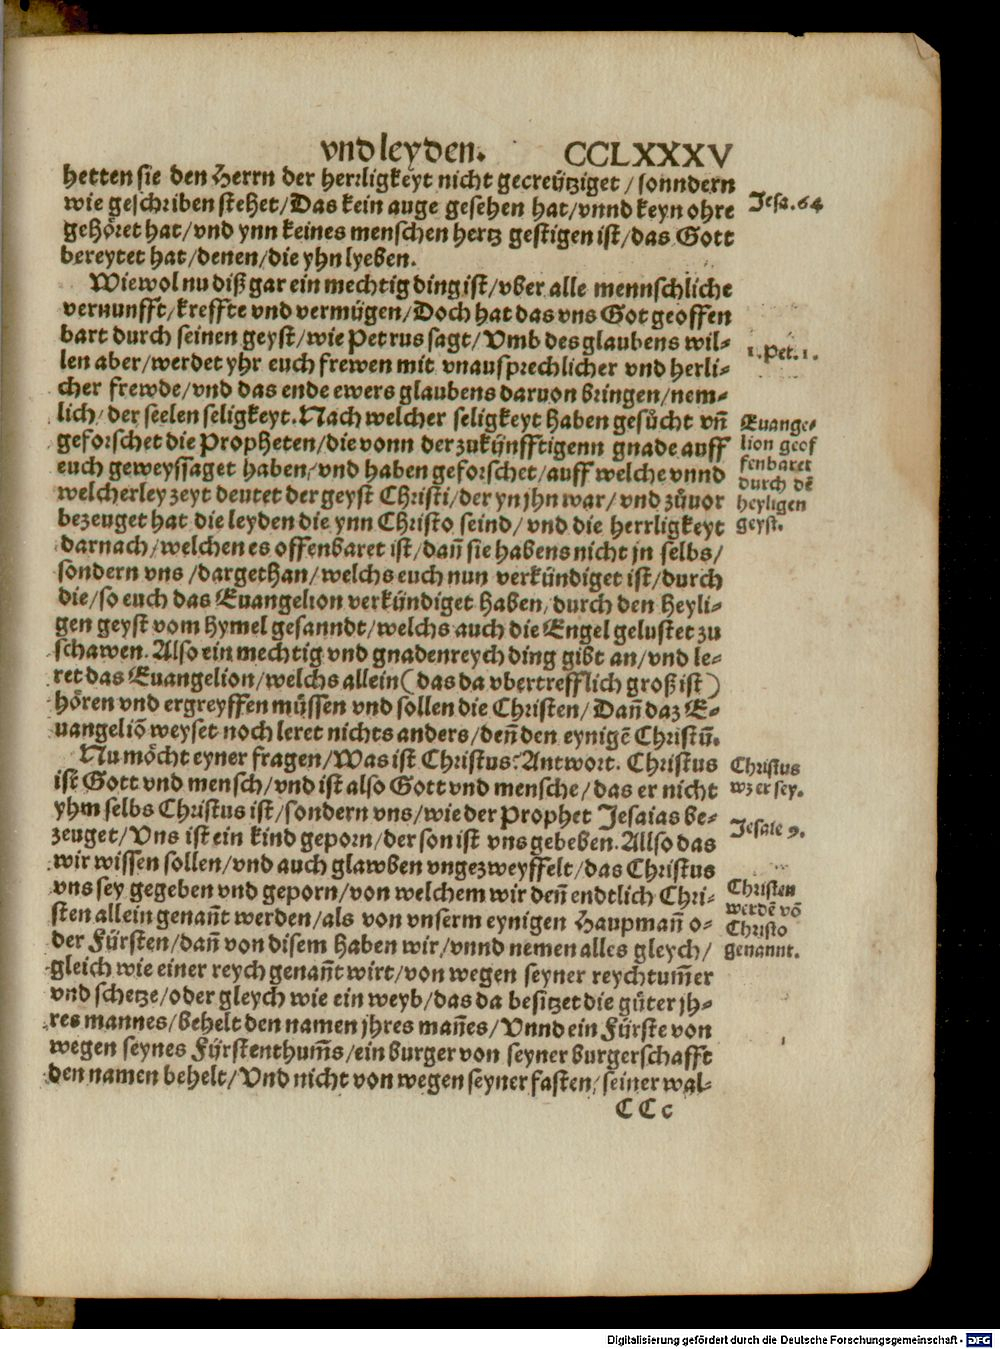 vnd leyden. CCLXXXV
hetten sie den Herrn der herrligkeyt nicht gecreütziget / sonndern
wie geschriben stehet / Das kein auge gesehen hat / vnnd keyn ohre
gehöret hat / vnd ynn keines menschen hertz gestigen ist / das Gott
bereytet hat / denen / die yhn lyeben.
Jesa. 64
Wiewol nu diß gar ein mechtig ding ist / vber alle mennschliche
vernunfft / kreffte vnd vermügen / Doch hat das vns Got geoffen
bart durch seinen geyst / wie Petrus sagt / Vmb des glaubens wil⸗
len aber / werdet yhr euch frewen mit vnausprechlicher vnd herli⸗
cher frewde / vnd das ende ewers glaubens daruon bringen / nem⸗
lich / der seelen seligkeyt. Nach welcher seligkeyt haben gesůcht vñ
geforschet die Propheten / die vonn der zukünfftigenn gnade auff
euch geweyssaget haben / vnd haben geforschet / auff welche vnnd
welcherley zeyt deutet der geyst Christi / der yn jhn war / vnd zůuor
bezeuget hat die leyden die ynn Christo seind / vnd die herrligkeyt
darnach / welchen es offenbaret ist / dañ sie habens nicht jn selbs /
sondern vns / dargethan / welchs euch nun verkündiget ist / durch
die / so euch das Euangelion verkündiget haben / durch den heyli⸗
gen geyst vom hymel gesanndt / welchs auch die Engel gelustet zu
schawen. Also ein mechtig vnd gnadenreych ding gibt an / vnd le⸗
ret das Euangelion / welchs allein ( das da vbertrefflich groß ist )
hören vnd ergreyffen müssen vnd sollen die Christen / Dañ daz E⸗
uangeliõ weyset noch leret nichts anders / deñ den eynigẽ Christũ.
1. Pet. 1.
Euange⸗
lion geof
fenbaret
durch dẽ
heyligen
geyst.
Nu möcht eyner fragen / Was ist Christus? Antwort. Christus
ist Gott vnd mensch / vnd ist also Gott vnd mensche / das er nicht
yhm selbs Christus ist / sondern vns / wie der Prophet Jesaias be⸗
zeuget / Vns ist ein kind geporn / der son ist vns gebeben. Allso das
wir wissen sollen / vnd auch glawben vngezweyffelt / das Christus
vns sey gegeben vnd geporn / von welchem wir deñ endtlich Chri⸗
sten allein genañt werden / als von vnserm eynigen Haupmañ o⸗
der Fürsten / dañ von disem haben wir / vnnd nemen alles gleych /
gleich wie einer reych genañt wirt / von wegen seyner reychtum̃er
vnd schetze / oder gleych wie ein weyb / das da besitzet die güter jh⸗
res mannes / behelt den namen jhres mañes / Vnnd ein Fürste von
wegen seynes Fürstenthum̃s / ein burger von seyner burgerschafft
den namen behelt / Vnd nicht von wegen seyner fasten / seiner wal⸗
Christus
wz er sey.
Jesaie 9.
Christen
werdẽ võ
Christo
genannt.
CCc
Digitalisierung gefördert durch die Deutsche Forschungsgemeinschaft - DFG